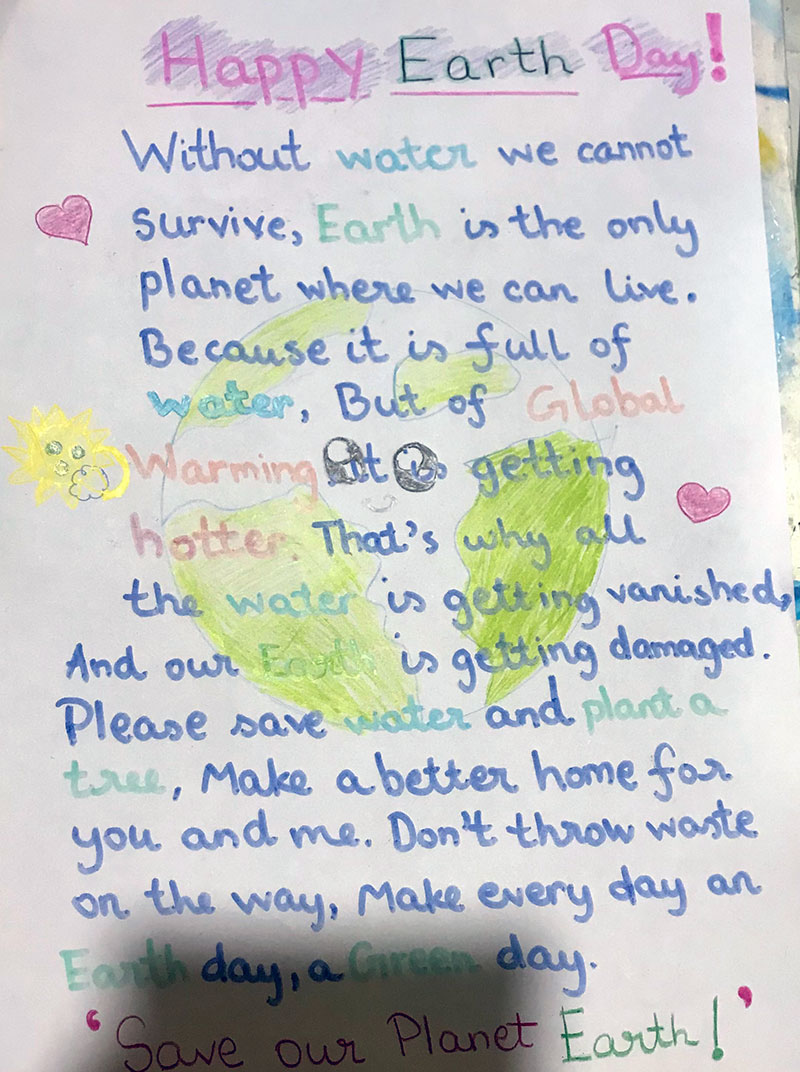 Happy Earth Day!
Without water we cannot
survive, Earth is the only
planet where we can live.
Because it is full of
water, But of Global
Warming it is getting
hotter. That's why all
the water is getting vanished,
And our Earth is getting damaged.
Please save water and plant a
tree, Make a better home for
you and me. Don't throw waste
on the way, Make every day an
Earth day, a Green day.
'Save our Planet Earth!'